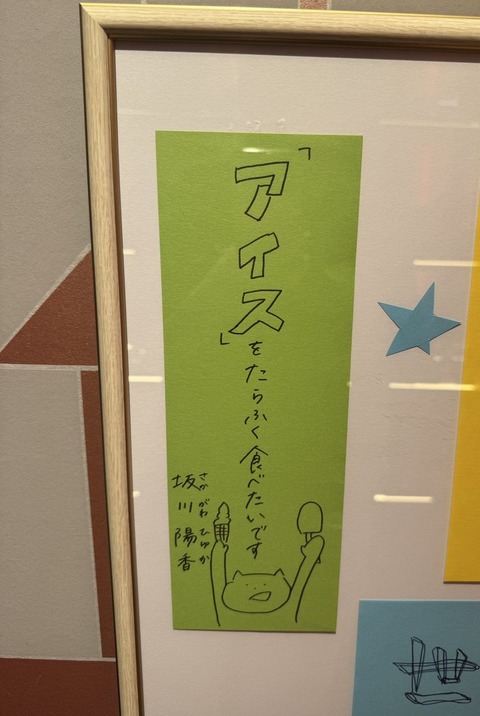 「アイス」をたらふく食べたいです
坂川陽香
さかがわ ひゅか
世